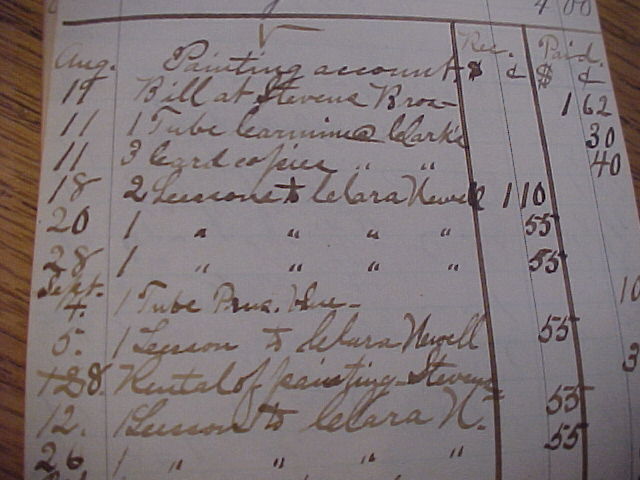 4 00
Aug. Painting account Rec. $ ¢ Paid. $ ¢
19 Bill at Stevens Bros— 1 62
11 1 Tube Carmine @ Clark's 30
11 3 Card copies " " 40
18 2 Lessons to Clara Newell 1 10
20 1 " " " " 55
28 1 " " " " 55
Sept.
4. 1 Tube Prus. blue— 10
5. 1 Lesson to Clara Newell 55
+28. Rental of painting—Stevens 3
12. 1 Lesson to Clara N. 55
26 1 " " " " 55